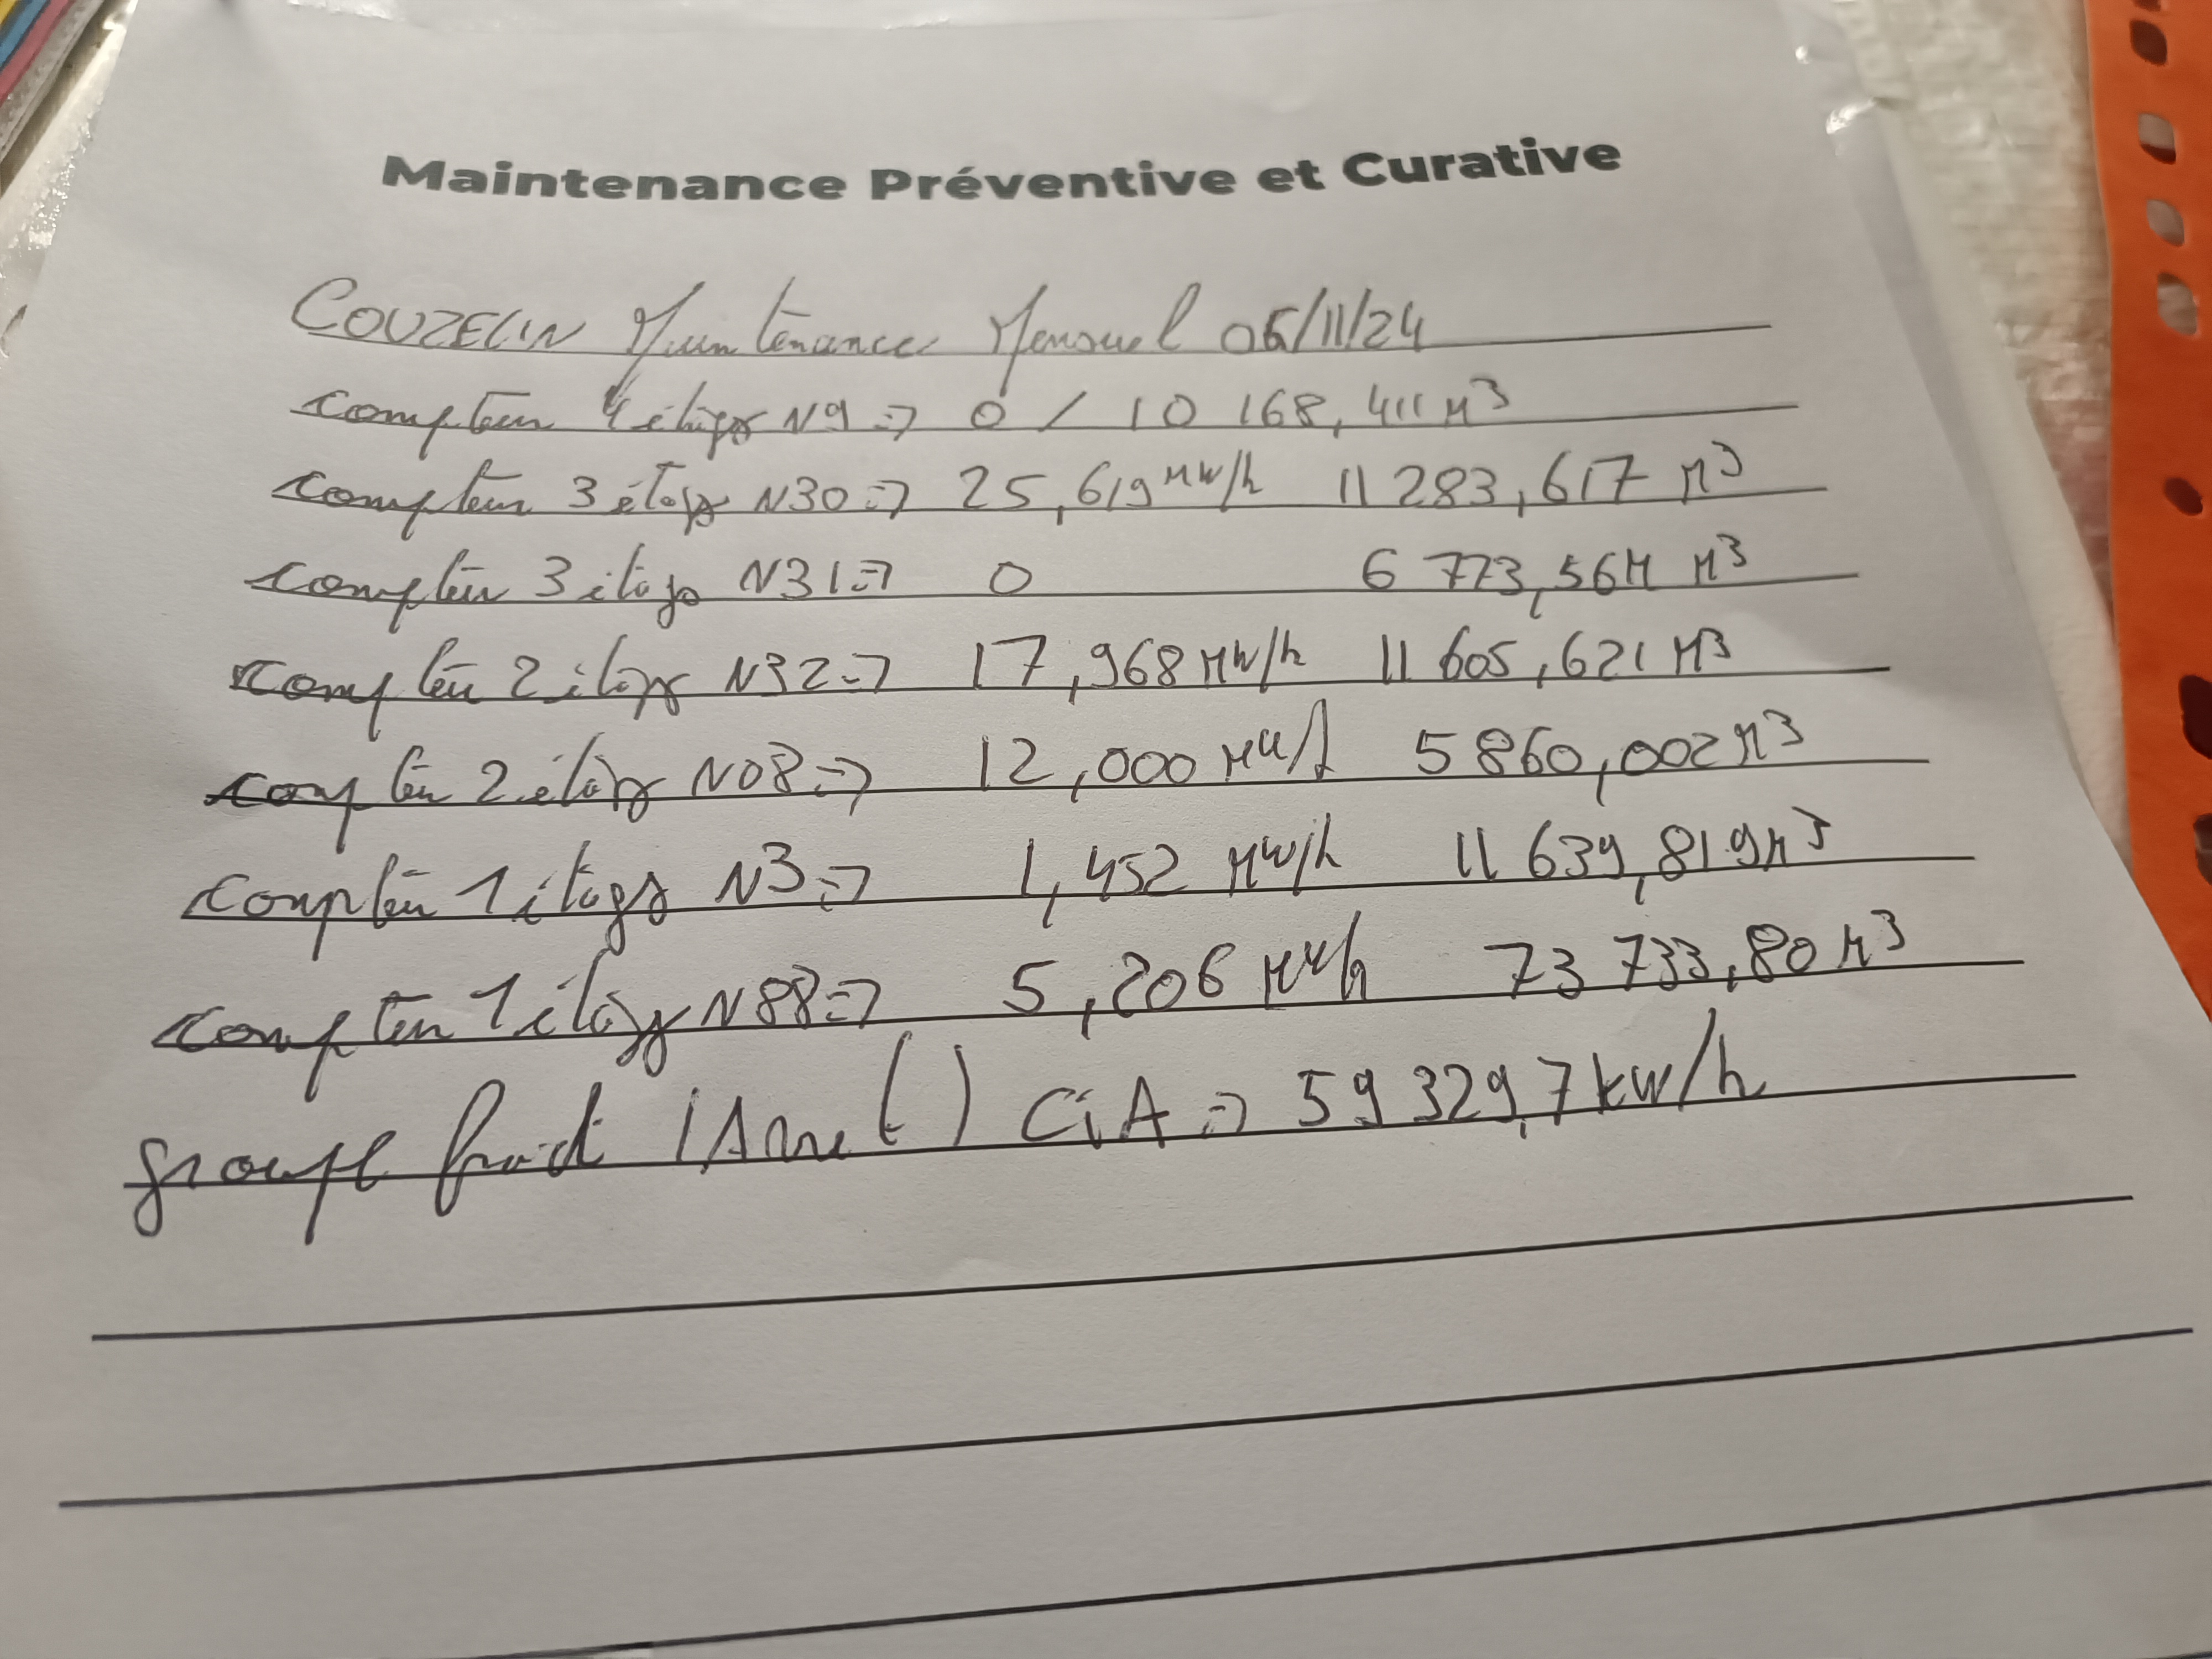 Maintenance Préventive et Curative
COUZELIN Maintenance Mensuel 06/11/24
compteur 4 étages N9 => 0 / 10 168,411 M³
compteur 3 étage N30 => 25,619 MW/h 11 283,617 M³
compteur 3 étage N31 => 0 6 773,564 M³
compteur 2 étage N32 => 17,968 MW/h 11 605,621 M³
compteur 2 étage N08 => 12,000 MW/h 5 860,002 M³
compteur 1 étage N3 => 1,452 MW/h 11 639,819 M³
compteur 1 étage N88 => 5,206 MW/h 73 733,80 M³
groupe froid (Arret) CiA => 59 329,7 kW/h